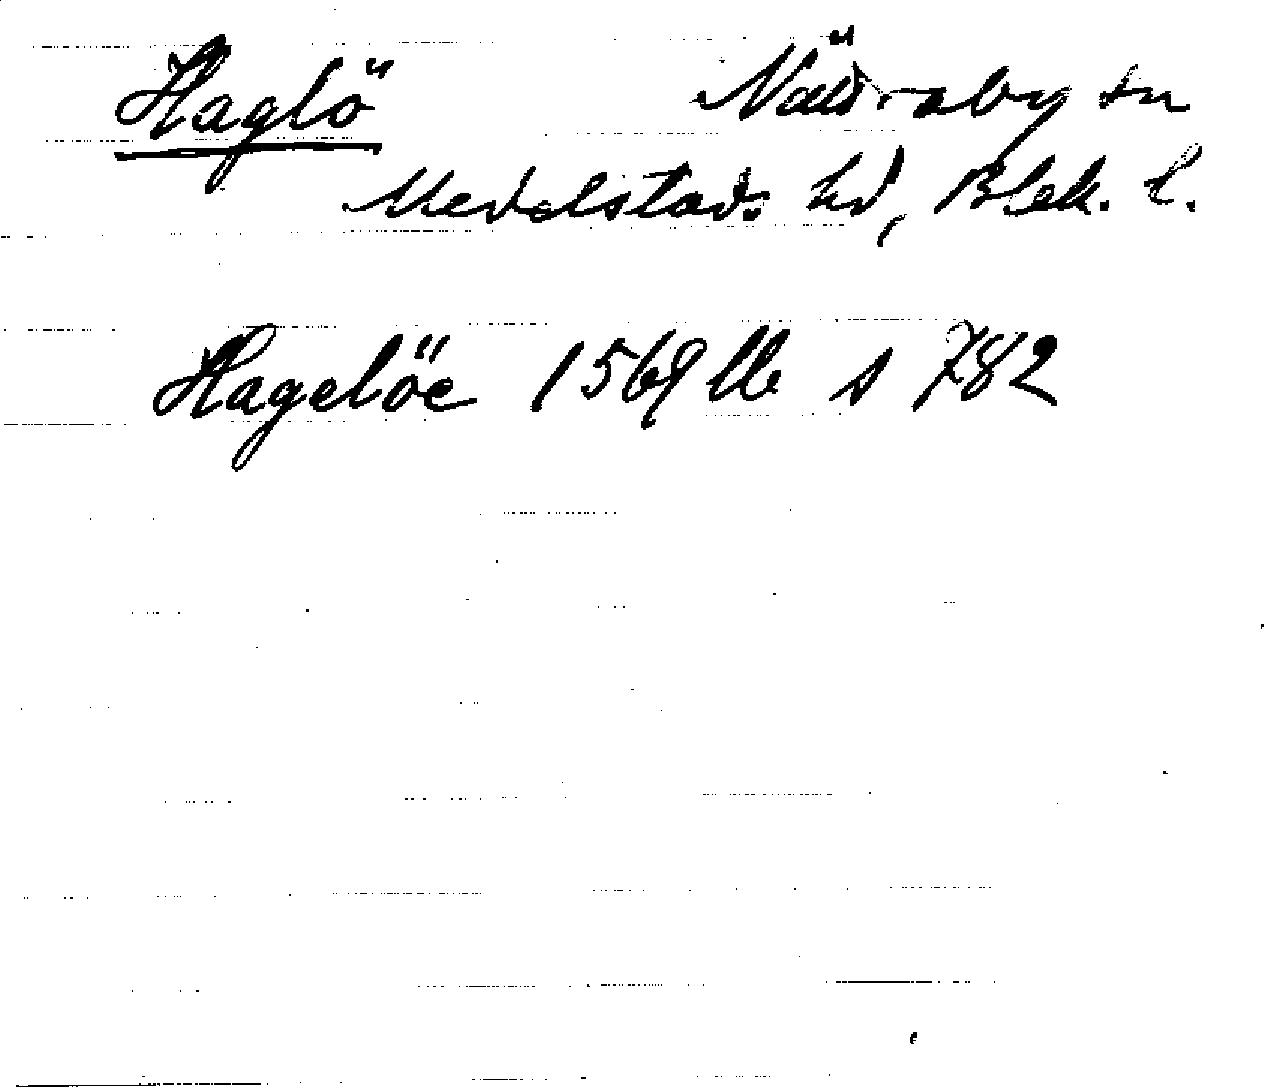 Haglö Nättraby sn
Medelstads hd, Blek. l.
Hagelöe 1569 lb s 782